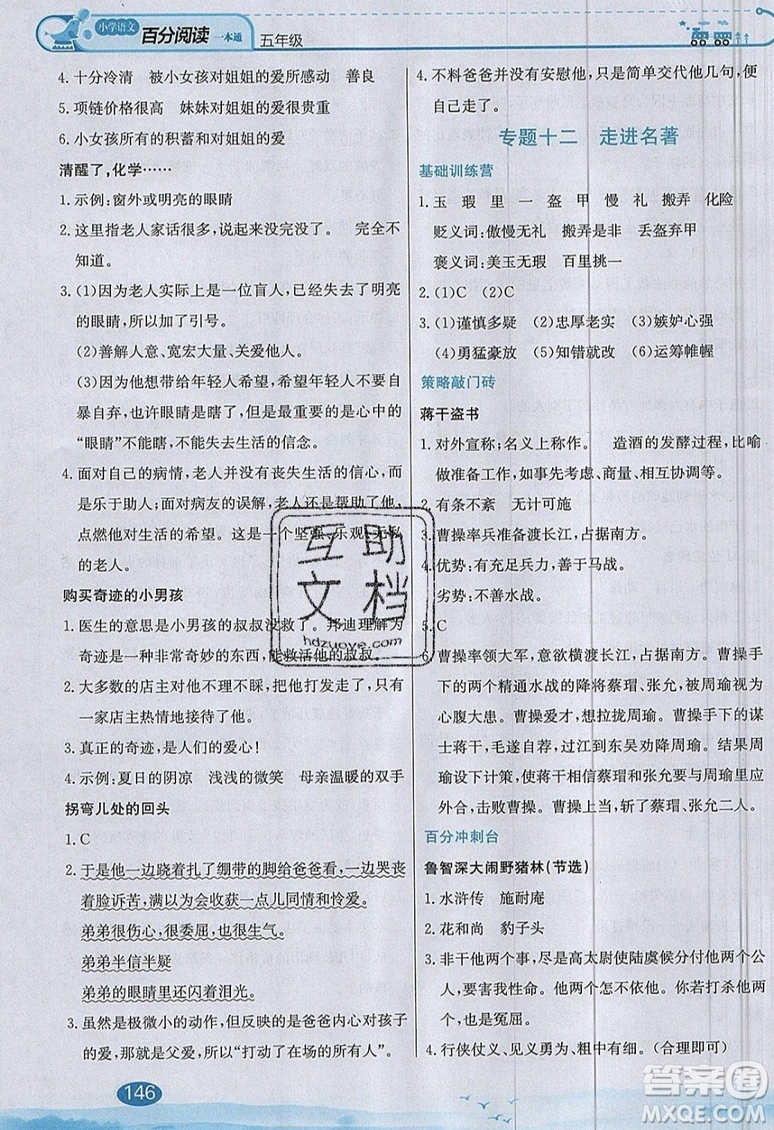 小学语文 百分阅读 一本通 五年级
4. 十分冷清 被小女孩对姐姐的爱所感动 善良
5. 项链价格很高 妹妹对姐姐的爱很贵重
6. 小女孩所有的积蓄和对姐姐的爱
清醒了,化学……
1. 示例:窗外或明亮的眼睛
2. 这里指老人家话很多,说起来没完没了。 完全不
知道。
3. (1)因为老人实际上是一位盲人,已经失去了明亮
的眼睛,所以加了引号。
(2)善解人意、宽宏大量、关爱他人。
(3)他想带给年轻人希望,希望年轻人不要自
暴自弃,也许眼睛是瞎了,但最重要的是心中的
“眼睛”不能瞎,不能失去生活的信念。
4. 面对自己的病情,老人并没有丧失生活的信心,而
是乐于助人;面对病友的误解,老人并没有责怪他,
点燃他对生活的希望。这是一个坚强、乐观、无私
的老人。
购买奇迹的小男孩
1. 医生的意思是小男孩的叔叔没救了。邦迪理解为
奇迹是一种非常奇妙的东西,能救活他的叔叔。
2. 大多数的店主对他不理不睬,把他打发走了。只有
一家店主热情地接待了他。
3. 真正的奇迹,是人们的爱心!
4. 示例:夏日的阴凉 浅浅的微笑 母亲温暖的双手
拐弯儿处的回头
1. C
2. 于是他一边跷着扎了绷带的脚给爸爸看,一边哭丧
着脸诉苦,满以为会收获一点儿同情和怜爱。
弟弟很伤心,很委屈,也很生气。
弟弟半信半疑
弟弟的眼睛里还闪着泪光。
3. 虽然是极微小的动作,但反映的是爸爸内心对孩子
的爱,那就是父爱,所以“打动了在场的所有人”。
146
4. 不料爸爸并没有安慰他,只是简单交代他几句,便
自己走了。
专题十二 走进名著
基础训练营
1. 玉 瑕 里 一 盔 甲 慢 礼 搬弄 化险
贬义词:傲慢无礼 搬弄是非 丢盔弃甲
褒义词:美玉无瑕 百里挑一
2. (1)C (2)C
3. (1)谨慎多疑 (2)忠厚老实 (3)嫉妒心强
(4)勇猛豪放 (5)知错就改 (6)运筹帷幄
策略敲门砖
蒋干盗书
1. 对外宣称;名义上称作。 造酒的发酵过程,比喻
做准备工作,如事先考虑、商量、相互协调等。
2. 有条不紊 无计可施
3. 曹操率兵准备渡长江,占据南方。
4. 优势:有充足兵力,善于马战。
劣势:不善水战。
5. C
6. 曹操率领大军,意欲横渡长江,占据南方。曹操手
下的两个精通水战的降将蔡瑁、张允,被周瑜视为
心腹大患。曹操爱才,想拉拢周瑜。曹操手下的谋
士蒋干,毛遂自荐,过江到东吴劝降周瑜。结果周
瑜设下计策,使蒋干相信蔡瑁和张允是东吴的内
应,回去报告曹操。曹操上当,斩了蔡瑁、张允二人。
百分冲刺台
鲁智深大闹野猪林(节选)
1. 水浒传 施耐庵
2. 花和尚 豹子头
3. 非干他两个事,尽是高太尉使陆虞候分付他两个公
人,要害我性命。他两个怎不依他。你若打杀他两
个,也是冤屈。
4. 行侠仗义、见义勇为、粗中有细。(合理即可)
互助
文档
hdzuoye.com
答案圈
MXQE.COM